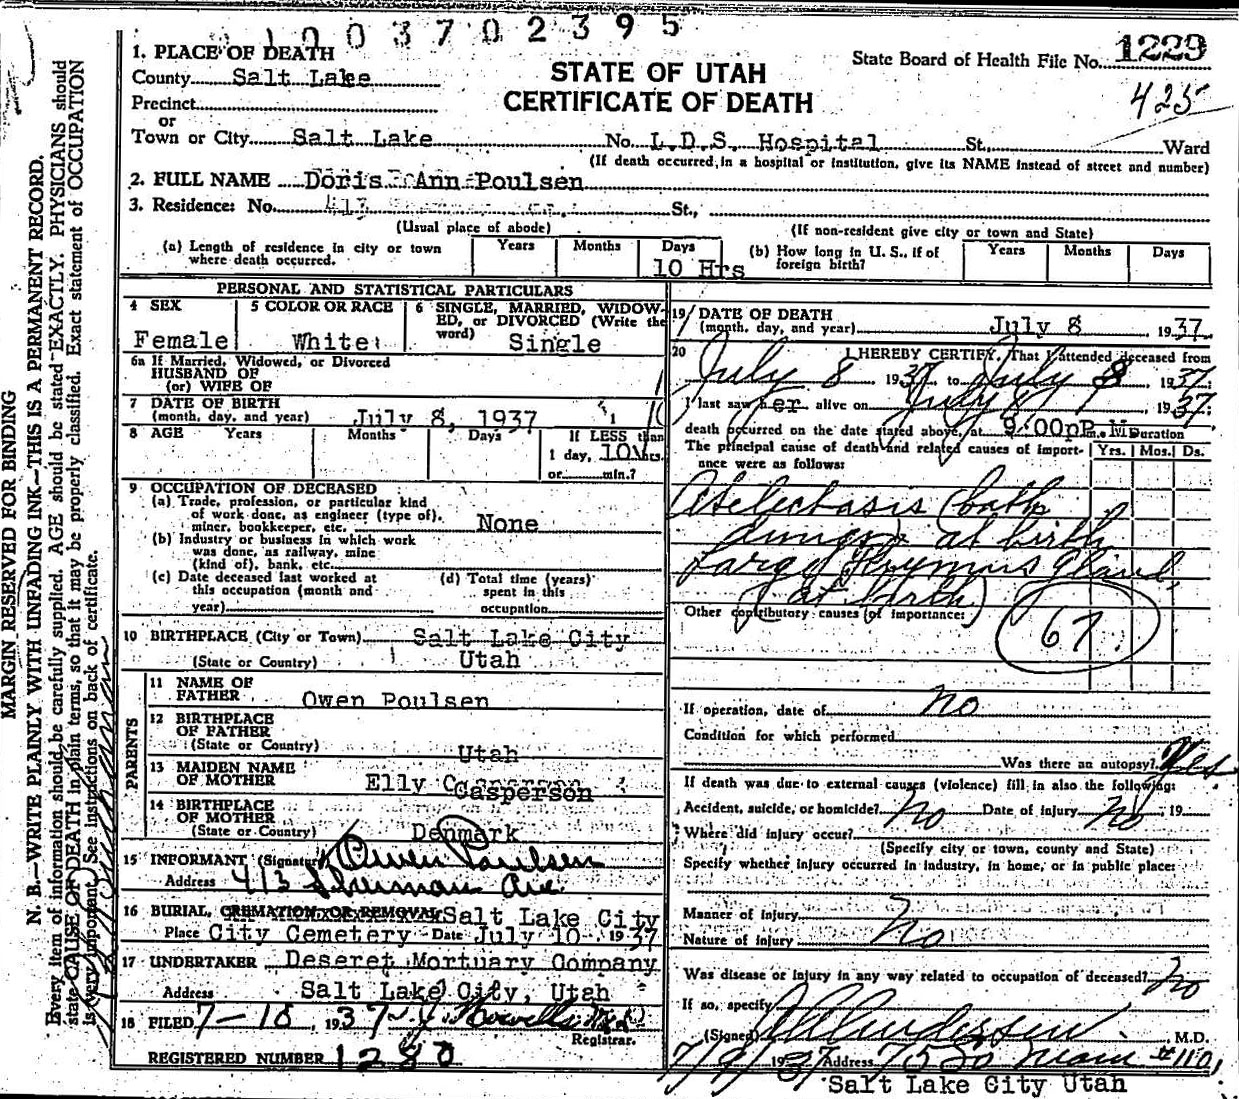 1003702395
1. PLACE OF DEATH
County Salt Lake
STATE OF UTAH
CERTIFICATE OF DEATH
State Board of Health File No. 1229
425
Precinct
or
Town or City Salt Lake No. L.D.S. Hospital St., Ward
(If death occurred in a hospital or institution, give its NAME instead of street and number)
2. FULL NAME Doris Ann Poulsen
3. Residence: No. 413 St.,
(Usual place of abode) (If non-resident give city or town and State)
(a) Length of residence in city or town where death occurred. Years Months Days 10 Hrs
(b) How long in U. S., if of foreign birth? Years Months Days
PERSONAL AND STATISTICAL PARTICULARS
4 SEX Female
5 COLOR OR RACE White
6 SINGLE, MARRIED, WIDOWED, or DIVORCED (Write the word) Single
6a If Married, Widowed, or Divorced
HUSBAND OF
(or) WIFE OF
7 DATE OF BIRTH
(month, day, and year) July 8, 1937
8 AGE Years Months Days If LESS than
1 day, 10 hrs.
or min.?
9 OCCUPATION OF DECEASED
(a) Trade, profession, or particular kind
of work done, as engineer (type of),
miner, bookkeeper, etc. None
(b) Industry or business in which work
was done, as railway, mine
(kind of), bank, etc.
(c) Date deceased last worked at
this occupation (month and
year)
(d) Total time (years)
spent in this
occupation
10 BIRTHPLACE (City or Town) Salt Lake City
(State or Country) Utah
PARENTS
11 NAME OF
FATHER Owen Poulsen
12 BIRTHPLACE
OF FATHER
(State or Country) Utah
13 MAIDEN NAME
OF MOTHER Elly Casperson
14 BIRTHPLACE
OF MOTHER
(State or Country) Denmark
15 INFORMANT (Signature) Owen Poulsen
Address 413 Sherman Ave
16 BURIAL, CREMATION OR REMOVAL Salt Lake City
Place City Cemetery Date July 10 1937
17 UNDERTAKER Deseret Mortuary Company
Address Salt Lake City, Utah
18 FILED 7-18, 1937 Howells M.D.
Registrar.
REGISTERED NUMBER 1280
19 DATE OF DEATH
(month, day, and year) July 8 1937
20 I HEREBY CERTIFY, That I attended deceased from
July 8 1937 to July 8 1937;
I last saw her alive on July 8 1937.
death occurred on the date stated above, at 9:00p P.M.
Duration
The principal cause of death and related causes of importance were as follows: Yrs. Mos. Ds.
Atelectasis (both
lungs) at birth
Large Thymus Gland
(at birth)
Other contributory causes of importance:
67
If operation, date of no
Condition for which performed
Was there an autopsy? Yes
If death was due to external causes (violence) fill in also the following:
Accident, suicide, or homicide? No Date of injury No, 19
Where did injury occur?
(Specify city or town, county and State)
Specify whether injury occurred in industry, in home, or in public place:
Manner of injury
Nature of injury No
Was disease or injury in any way related to occupation of deceased? no
If so, specify
(Signed) Andersen, M.D.
7/9/1937 Address 75 So Main #1101
Salt Lake City Utah
MARGIN RESERVED FOR BINDING
N. B.—WRITE PLAINLY WITH UNFADING INK—THIS IS A PERMANENT RECORD.
Every item of information should be carefully supplied. AGE should be stated EXACTLY. PHYSICIANS should
state CAUSE OF DEATH in plain terms, so that it may be properly classified. Exact statement of OCCUPATION
is very important. See instructions on back of certificate.